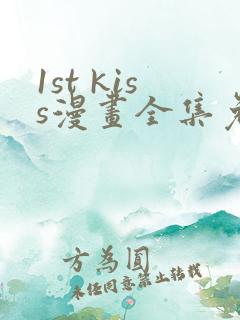 1st kis
s漫畫全集免
方為圓
未經同意禁止轉載